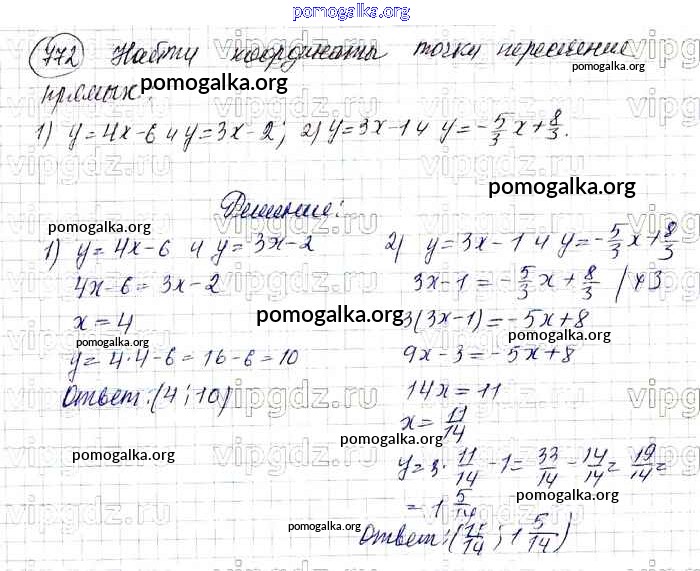 pomogalka.org
772 Найти координаты точки пересечение
прямых.
pomogalka.org
1) y=4x-6 и y=3x-2; 2) y=3x-1 и y=-5/3x+8/3.
pomogalka.org
Решение:
pomogalka.org
1) y=4x-6 и y=3x-2
4x-6=3x-2
x=4
pomogalka.org
y=4·4-6=16-6=10
Ответ: (4;10)
2) y=3x-1 и y=-5/3x+8/3
3x-1=-5/3x+8/3 /×3
pomogalka.org
3(3x-1)=-5x+8
pomogalka.org
9x-3=-5x+8
14x=11
x=11/14
pomogalka.org
y=3·11/14-1=33/14-14/14=19/14=
pomogalka.org
=1 5/14
pomogalka.org
pomogalka.org
Ответ: (11/14; 1 5/14)
vipgdz.ru
vipgdz.ru
vipgdz.ru
vipgdz.ru